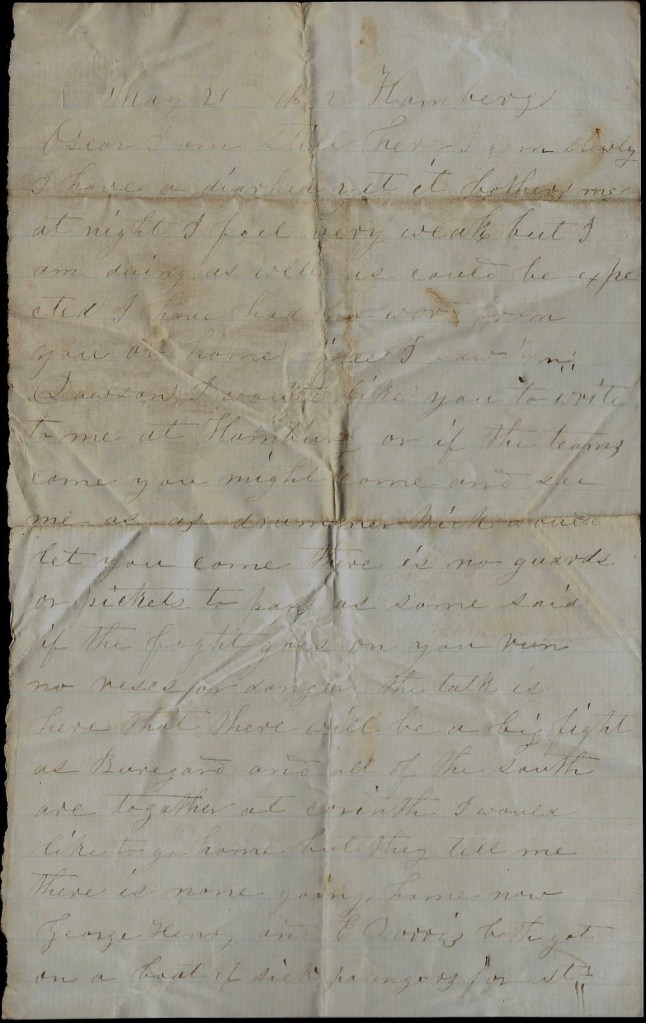 May 21 Hamberg
Oscar I am still here I gain slowly
I have a diarhea yet it bothers me
at night I feel very weak but I
am doing as well as could be expe
cted I have had no word from
you or home since I saw
Dawson I would like you to write
to me at Hamburg or if the teams
come you might come and see
me as a drummer would
let you come there is no guards
or pickets to pass as some said
if the fight goes on you run
no reses or danger the talk is
here that there will be a big fight
as Buregard and all of the south
are together at corinth I would
like to go home but they tell me
there is none going home now
George Henry and E Dorris both got
on a boat of sick for st